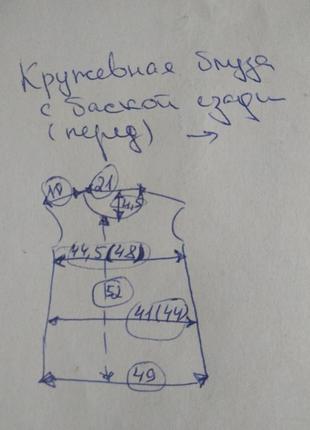 Кружевная блуза
с баской сзади
(перед) →
10 21
4,5
44,5(48)
52
41(44)
49